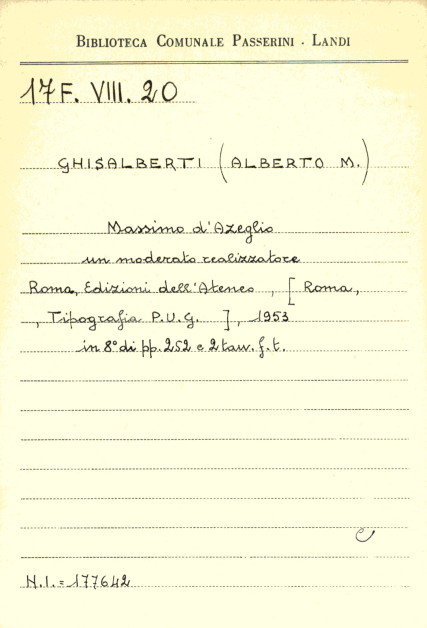 BIBLIOTECA COMUNALE PASSERINI - LANDI
17 F. VIII. 20
GHISALBERTI (ALBERTO M.)
Massimo d'Azeglio
un moderato realizzatore
Roma, Edizioni dell'Ateneo, [Roma,
, Tipografia P.U.G. ], 1953
in 8° di pp. 252 e 2 tav. f. t.
C
N.I. = 177642